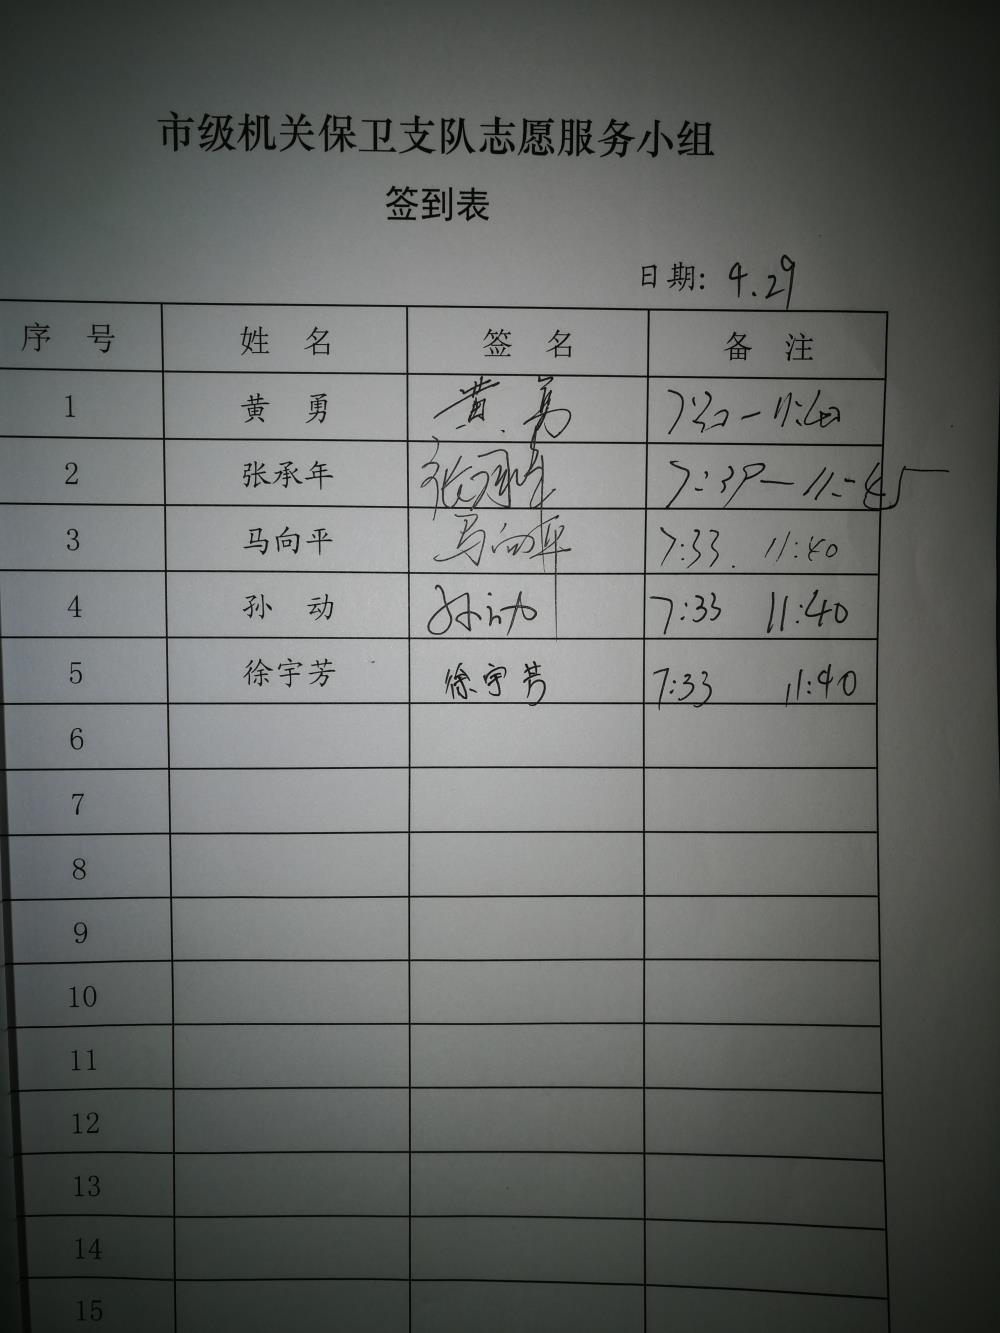 市级机关保卫支队志愿服务小组
签到表
日期: 4.29
序 号 姓 名 签 名 备 注
1 黄 勇 黄勇 7:20-11:40
2 张承年 张承年 7:39-11:45
3 马向平 马向平 7:33. 11:40
4 孙 动 孙动 7:33 11:40
5 徐宇芳 徐宇芳 7:33 11:40
6
7
8
9
10
11
12
13
14
15